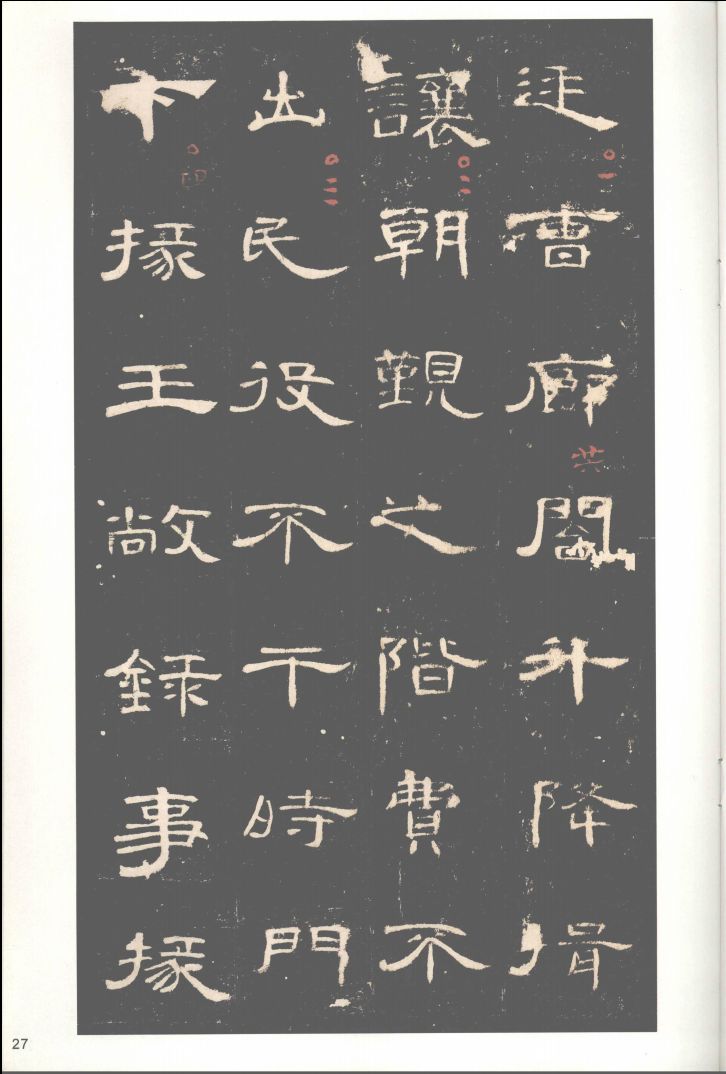 廷曹廊閣升降揖
讓朝覲之階費不
出民役不干時門
下掾王敞錄事掾
27